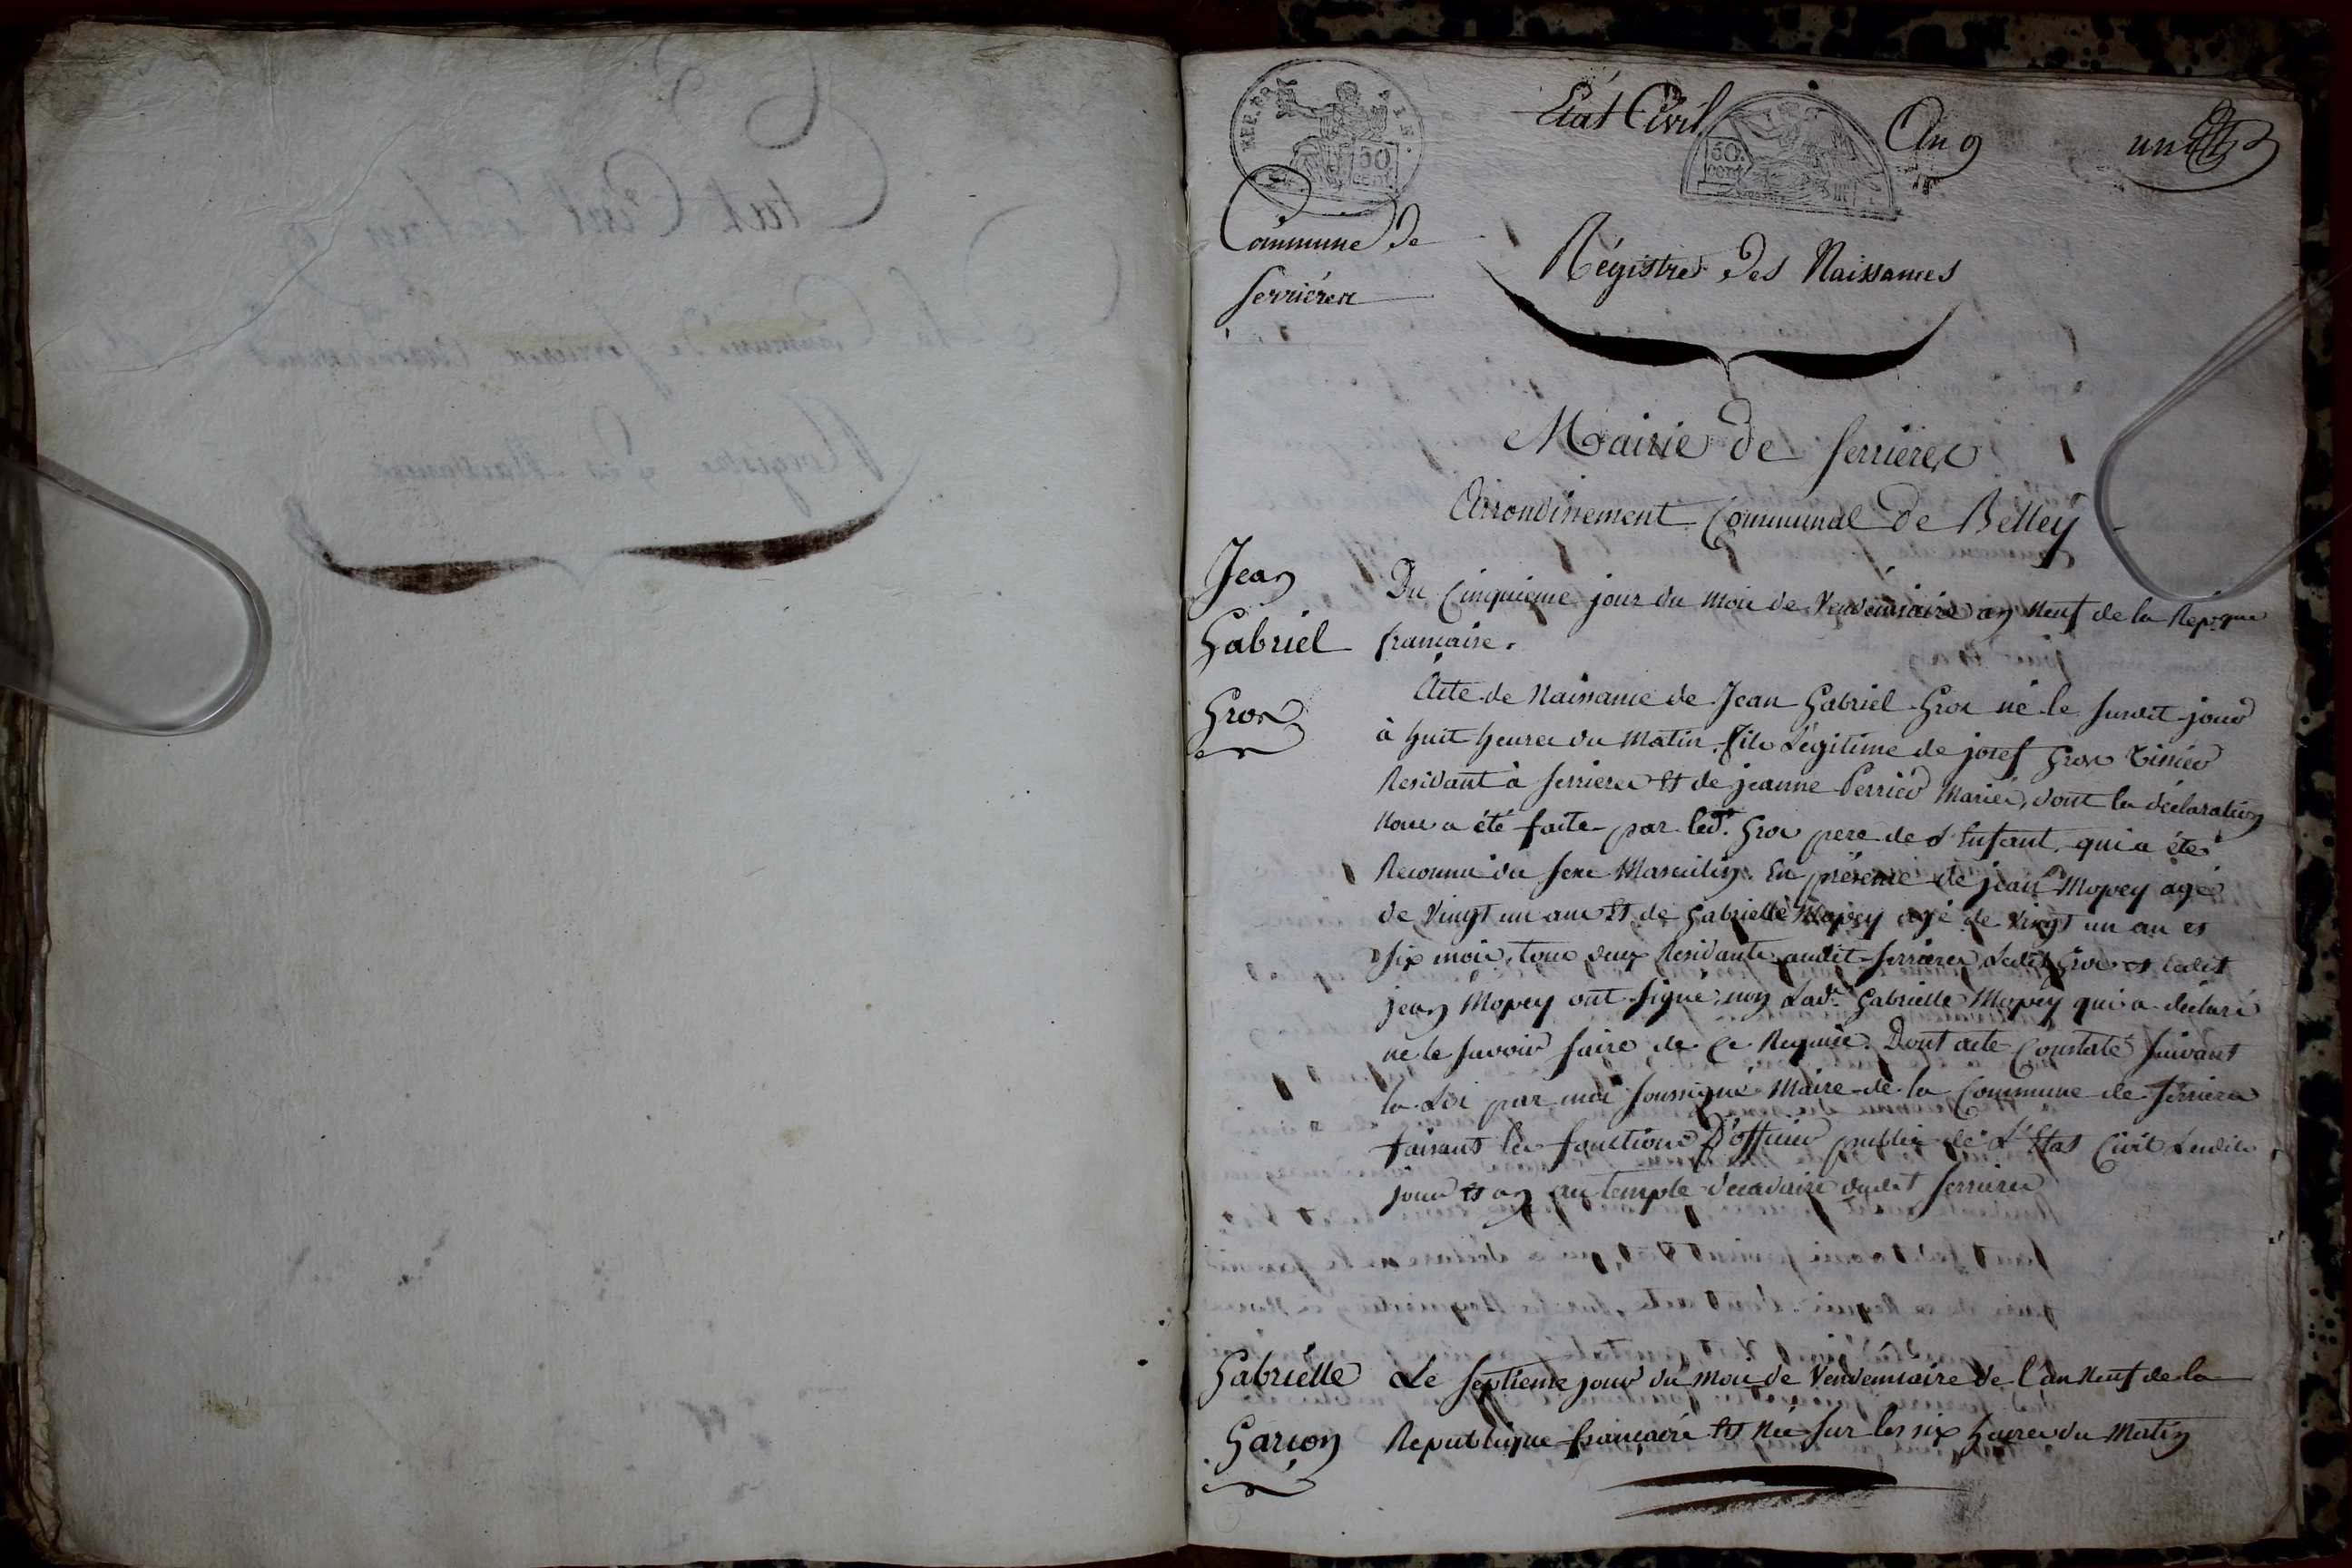 Etat Civil
An 9
un
REP. FRA
50
cent
50
cent
Commune de
Serrieres
Régistres Des Naissances
Mairie de Serrieres
Arrondissement Communal De Belley
Jean
Gabriel
Gros
Du Cinquieme jour du mois de Vendemiaire an neuf de la Repque
francaise.
Acte de Naissance de Jean Gabriel Gros né le susdit jour
à huit heures du matin. fils Légitime de josef Gros
Residant à Serrieres et de jeanne Perrier Mariés, dont la déclaration
nous a été faite par led.t Gros pere de L'Enfant, qui a été
Reconnu du sexe Masculin. En présence de jean Mopey agé
de vingt un ans et de Gabrielle Mopey agé de vingt un an et
six mois, tous deux Residants audit Serrieres Ledit Gros et ledit
jean Mopey ont signé, non Lad.e Gabrielle Mopey qui a déclaré
ne le savoir faire de ce Requise. Dont acte Constaté suivant
la Loi par moi soussigné Maire de la Commune de Serrieres
faisant les fonctions D'officier public de L'Etat Civil Lesdits
jour et an au temple décadaire dudit Serrieres
Gabrielle
Garion
Le Septieme jour du mois de Vendemiaire de l'an Neuf de la
Republique francaise Est Née sur les six heures du Matin